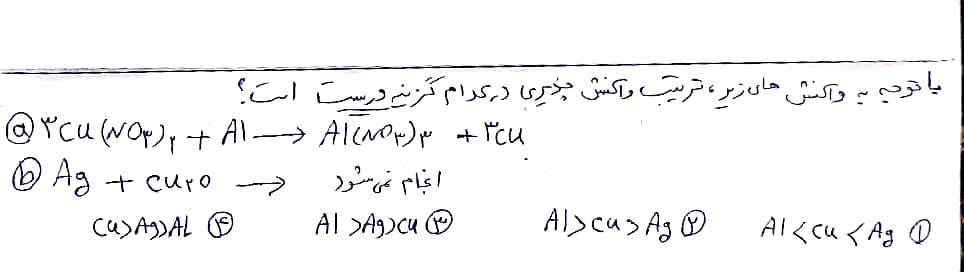 با توجه به واکنش های زیر، ترتیب واکنش پذیری در کدام گزینه درست است؟
ⓐ ۳Cu(NO۳)۲ + Al ⟶ Al(NO۳)۳ + ۳Cu
ⓑ Ag + Cu۲O ⟶ انجام نمی شود
① Al<Cu<Ag ② Al>Cu>Ag ③ Al>Ag>Cu ④ Cu>Ag>AL